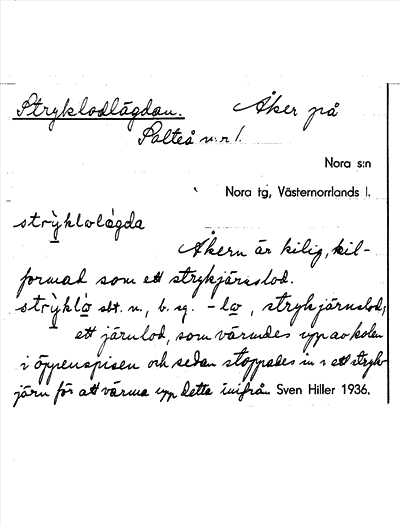 Stryklodlägdan. Åker på
Salteå n:r 1.
Nora s:n
Nora tg, Västernorrlands l.
strỳklolàgda
Åkern är kilig, kil-
formad som ett strykjärnslod.
strỳklò sbt. n., b. sg. -lo, strykjärnslod;
ett järnlod, som värmdes upp av kolen
i öppenspisen och sedan stoppades in i ett stryk-
järn för att värma upp detta inifrån. Sven Hiller 1936.